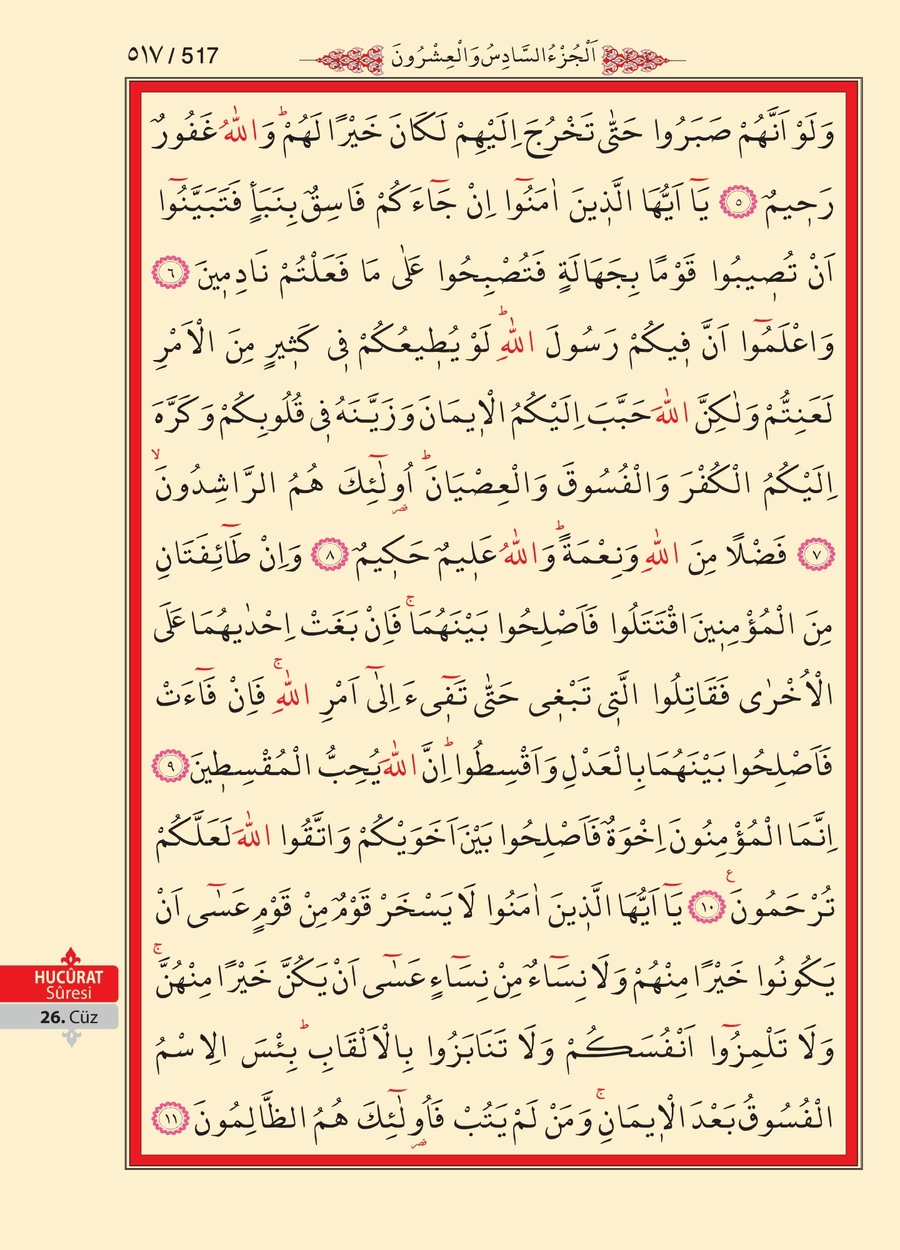 ٥١٧ / 517
اَلْجُزْءُ السَّادِسُ وَالْعِشْرُونَ
وَلَوْ اَنَّهُمْ صَبَرُوا حَتّٰى تَخْرُجَ اِلَيْهِمْ لَكَانَ خَيْرًا لَهُمْۜ وَاللّٰهُ غَفُورٌ
رَح۪يمٌ ﴿٥﴾ يَٓا اَيُّهَا الَّذ۪ينَ اٰمَنُٓوا اِنْ جَٓاءَكُمْ فَاسِقٌ بِنَبَأٍ فَتَبَيَّنُٓوا
اَنْ تُص۪يبُوا قَوْمًا بِجَهَالَةٍ فَتُصْبِحُوا عَلٰى مَا فَعَلْتُمْ نَادِم۪ينَ ﴿٦﴾
وَاعْلَمُٓوا اَنَّ ف۪يكُمْ رَسُولَ اللّٰهِۜ لَوْ يُط۪يعُكُمْ ف۪ى كَث۪يرٍ مِنَ الْاَمْرِ
لَعَنِتُّمْ وَلٰكِنَّ اللّٰهَ حَبَّبَ اِلَيْكُمُ الْا۪يمَانَ وَزَيَّنَهُ ف۪ى قُلُوبِكُمْ وَكَرَّهَ
اِلَيْكُمُ الْكُفْرَ وَالْفُسُوقَ وَالْعِصْيَانَۜ اُو۬لٰٓئِكَ هُمُ الرَّاشِدُونَۙ
﴿٧﴾ فَضْلًا مِنَ اللّٰهِ وَنِعْمَةًۜ وَاللّٰهُ عَل۪يمٌ حَك۪يمٌ ﴿٨﴾ وَاِنْ طَٓائِفَتَانِ
مِنَ الْمُؤْمِن۪ينَ اقْتَتَلُوا فَاَصْلِحُوا بَيْنَهُمَاۚ فَاِنْ بَغَتْ اِحْدٰيهُمَا عَلَى
الْاُخْرٰى فَقَاتِلُوا الَّت۪ى تَبْغ۪ى حَتّٰى تَف۪ٓىءَ اِلٰٓى اَمْرِ اللّٰهِۚ فَاِنْ فَٓاءَتْ
فَاَصْلِحُوا بَيْنَهُمَا بِالْعَدْلِ وَاَقْسِطُواۜ اِنَّ اللّٰهَ يُحِبُّ الْمُقْسِط۪ينَ ﴿٩﴾
اِنَّمَا الْمُؤْمِنُونَ اِخْوَةٌ فَاَصْلِحُوا بَيْنَ اَخَوَيْكُمْ وَاتَّقُوا اللّٰهَ لَعَلَّكُمْ
تُرْحَمُونَ۟ ﴿١٠﴾ يَٓا اَيُّهَا الَّذ۪ينَ اٰمَنُوا لَا يَسْخَرْ قَوْمٌ مِنْ قَوْمٍ عَسٰٓى اَنْ
يَكُونُوا خَيْرًا مِنْهُمْ وَلَا نِسَٓاءٌ مِنْ نِسَٓاءٍ عَسٰٓى اَنْ يَكُنَّ خَيْرًا مِنْهُنَّۚ
وَلَا تَلْمِزُٓوا اَنْفُسَكُمْ وَلَا تَنَابَزُوا بِالْاَلْقَابِۜ بِئْسَ الِاسْمُ
الْفُسُوقُ بَعْدَ الْا۪يمَانِۚ وَمَنْ لَمْ يَتُبْ فَاُو۬لٰٓئِكَ هُمُ الظَّالِمُونَ ﴿١١﴾
HUCÛRAT
Sûresi
26. Cüz